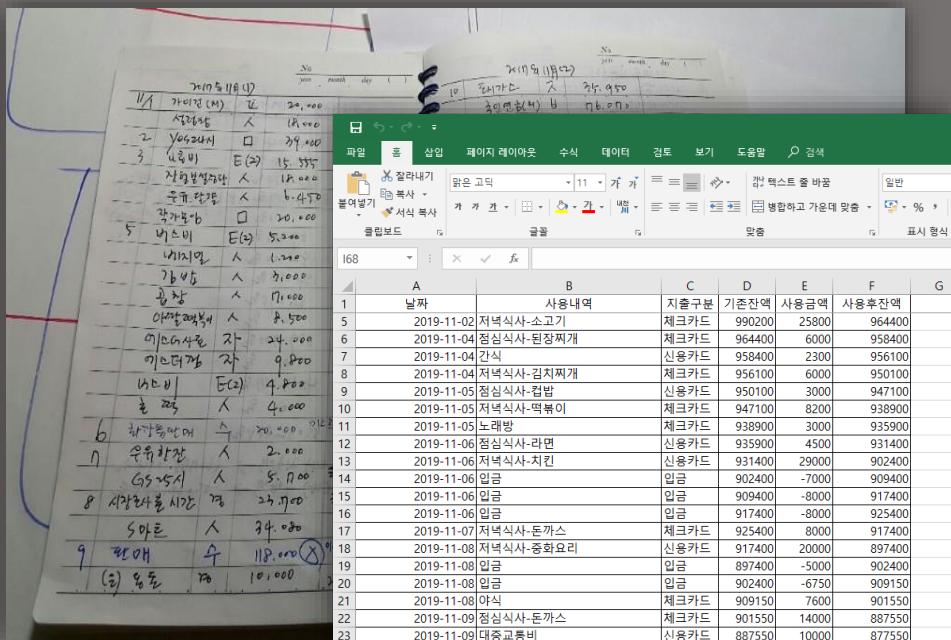 No
year month day ( )
2017년 11월 (1)
11/1 20,000
설렁탕 人 18,000
2 Yes24시 口 39,000
3 교통비 E(2) 15.555
人 18.000
우유,달걀 人 6.450
口 20.000
5 버스비 E(2) 5.200
人 1.200
김밥 人 3,000
곱창 人 17,000
人 8,500
자 24.000
자 9.800
버스비 E(2) 4.800
호떡 人 4.000
6 수 20,000
7 우유한잔 人 2.000
GS25시 人 5.700
8 경 23.700
S마트 人 34.080
9 판매 수 118.000 X
용돈 경 101,000
No
year month day ( )
2017년 11월 (2)
10 돈까스 人 35.950
76.070
파일 홈 삽입 페이지 레이아웃 수식 데이터 검토 보기 도움말 검색
붙여넣기
잘라내기
복사
서식 복사
클립보드
맑은 고딕 11 가 가
가 가 가 가 내천
글꼴
텍스트 줄 바꿈
병합하고 가운데 맞춤
맞춤
일반
%
표시 형식
I68 fx
A B C D E F G
1 날짜 사용내역 지출구분 기존잔액 사용금액 사용후잔액
5 2019-11-02 저녁식사-소고기 체크카드 990200 25800 964400
6 2019-11-04 점심식사-된장찌개 체크카드 964400 6000 958400
7 2019-11-04 간식 신용카드 958400 2300 956100
8 2019-11-04 저녁식사-김치찌개 체크카드 956100 6000 950100
9 2019-11-05 점심식사-컵밥 신용카드 950100 3000 947100
10 2019-11-05 저녁식사-떡볶이 체크카드 947100 8200 938900
11 2019-11-05 노래방 체크카드 938900 3000 935900
12 2019-11-06 점심식사-라면 신용카드 935900 4500 931400
13 2019-11-06 저녁식사-치킨 신용카드 931400 29000 902400
14 2019-11-06 입금 입금 902400 -7000 909400
15 2019-11-06 입금 입금 909400 -8000 917400
16 2019-11-06 입금 입금 917400 -8000 925400
17 2019-11-07 저녁식사-돈까스 체크카드 925400 8000 917400
18 2019-11-08 저녁식사-중화요리 신용카드 917400 20000 897400
19 2019-11-08 입금 입금 897400 -5000 902400
20 2019-11-08 입금 입금 902400 -6750 909150
21 2019-11-08 야식 체크카드 909150 7600 901550
22 2019-11-09 점심식사-돈까스 체크카드 901550 14000 887550
23 2019-11-09 대중교통비 신용카드 887550 10000 877550